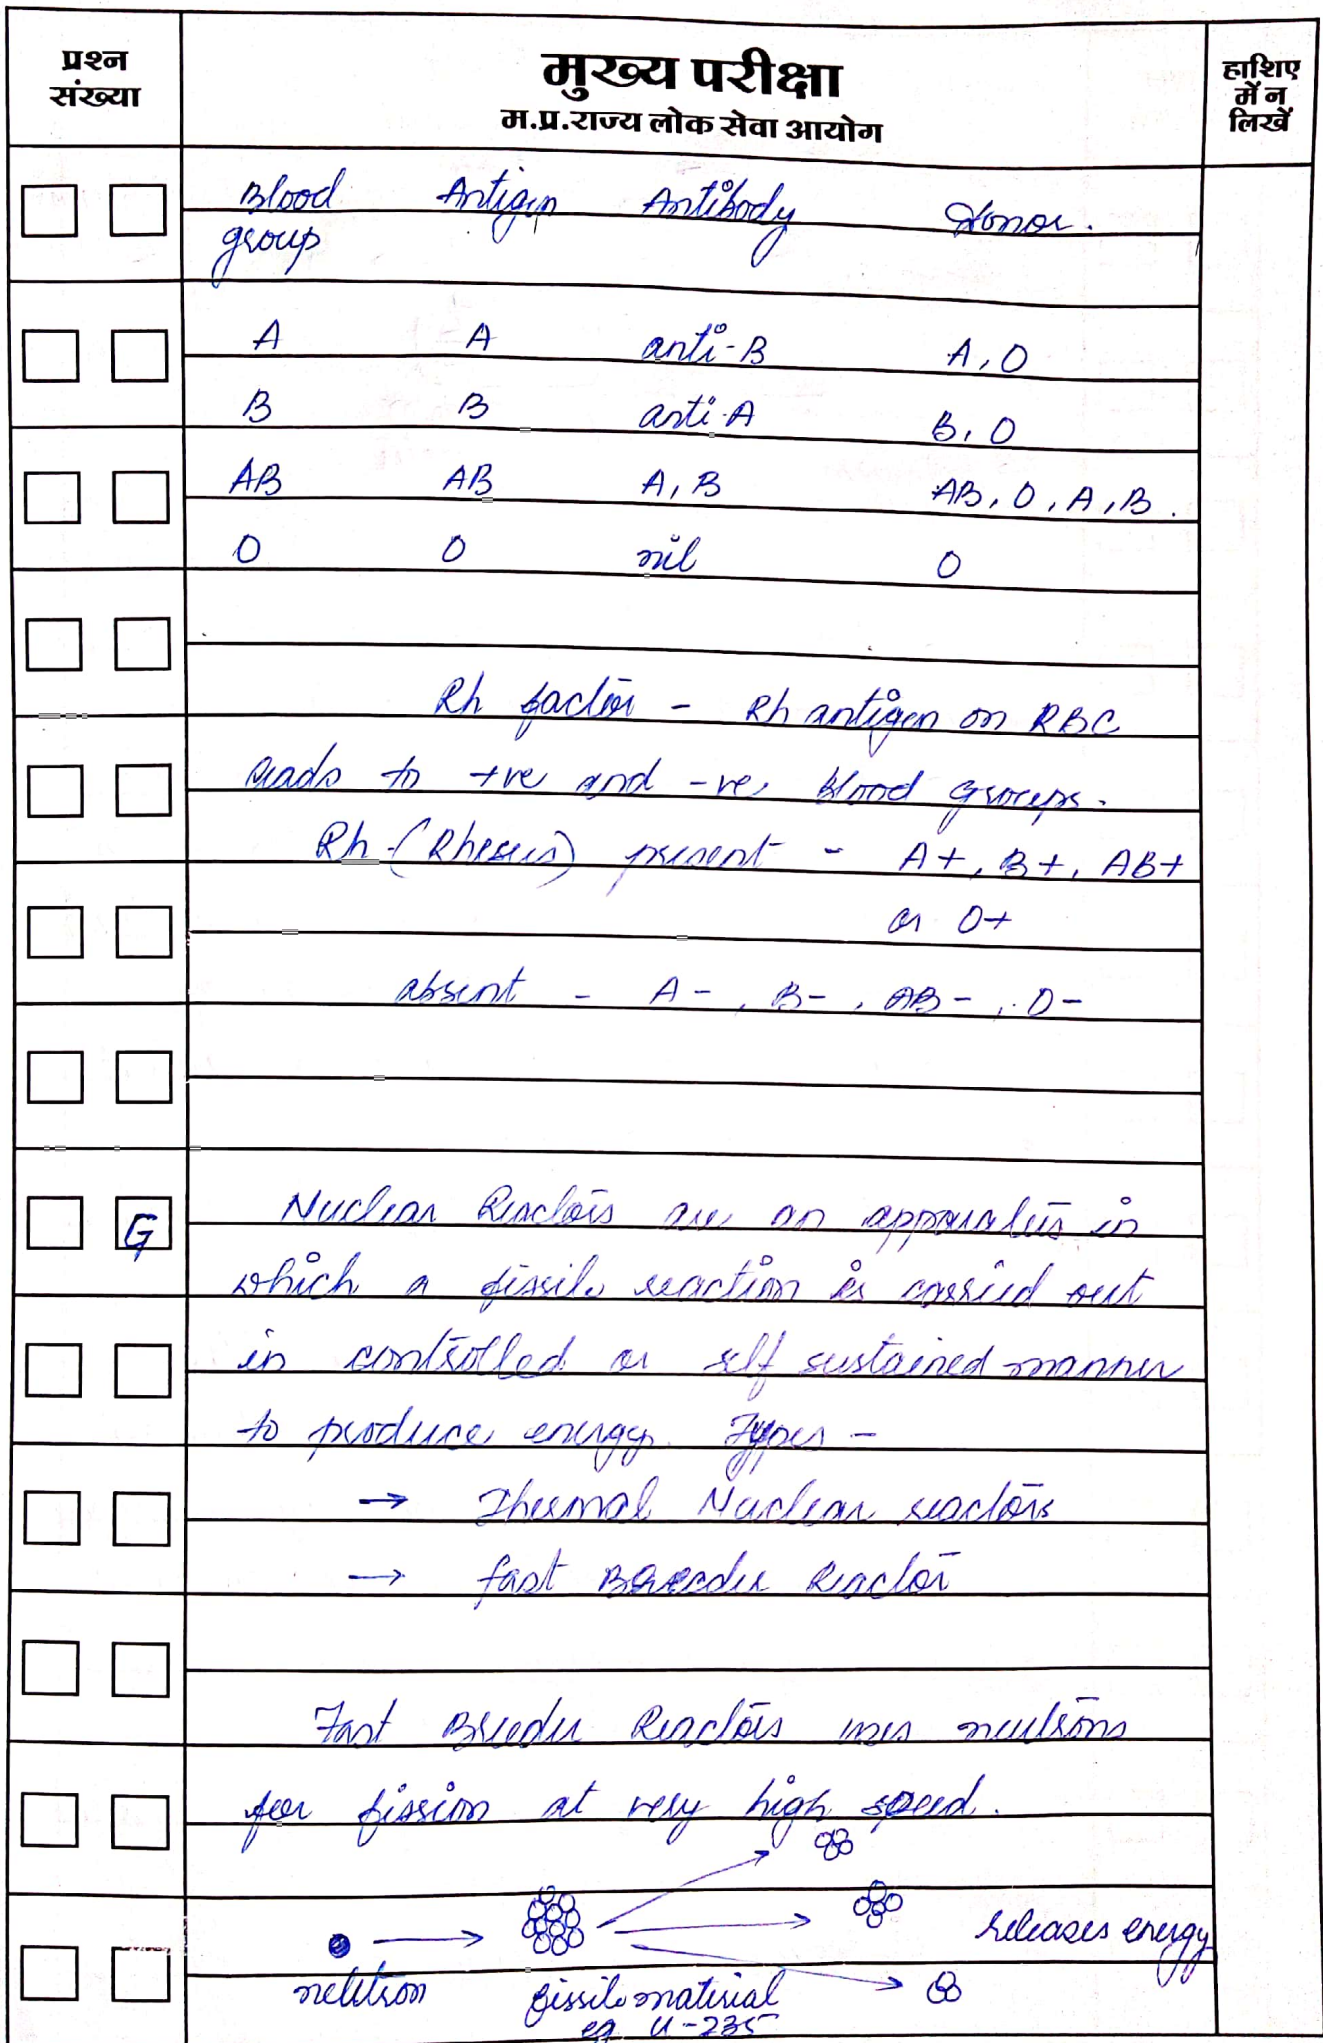 प्रश्न संख्या
मुख्य परीक्षा
म.प्र.राज्य लोक सेवा आयोग
हाशिए में न लिखें
Blood group Antigen Antibody Donor.
A A anti-B A, O
B B anti-A B, O
AB AB A, B AB, O, A, B.
O O nil O
Rh factor - Rh antigen on RBC
leads to +ve and -ve, blood groups.
Rh-(Rhesus) present - A+, B+, AB+
or O+
absent - A-, B-, AB-, O-
G
Nuclear Reactors are an apparatus in
which a fissile reaction is carried out
in controlled or self sustained manner
to produce energy. Types -
→ Thermal Nuclear reactors
→ fast Breeder Reactor
Fast Breeder Reactors uses neutrons
for fission at very high speed.
releases energy
neutron fissile material
eg U-235